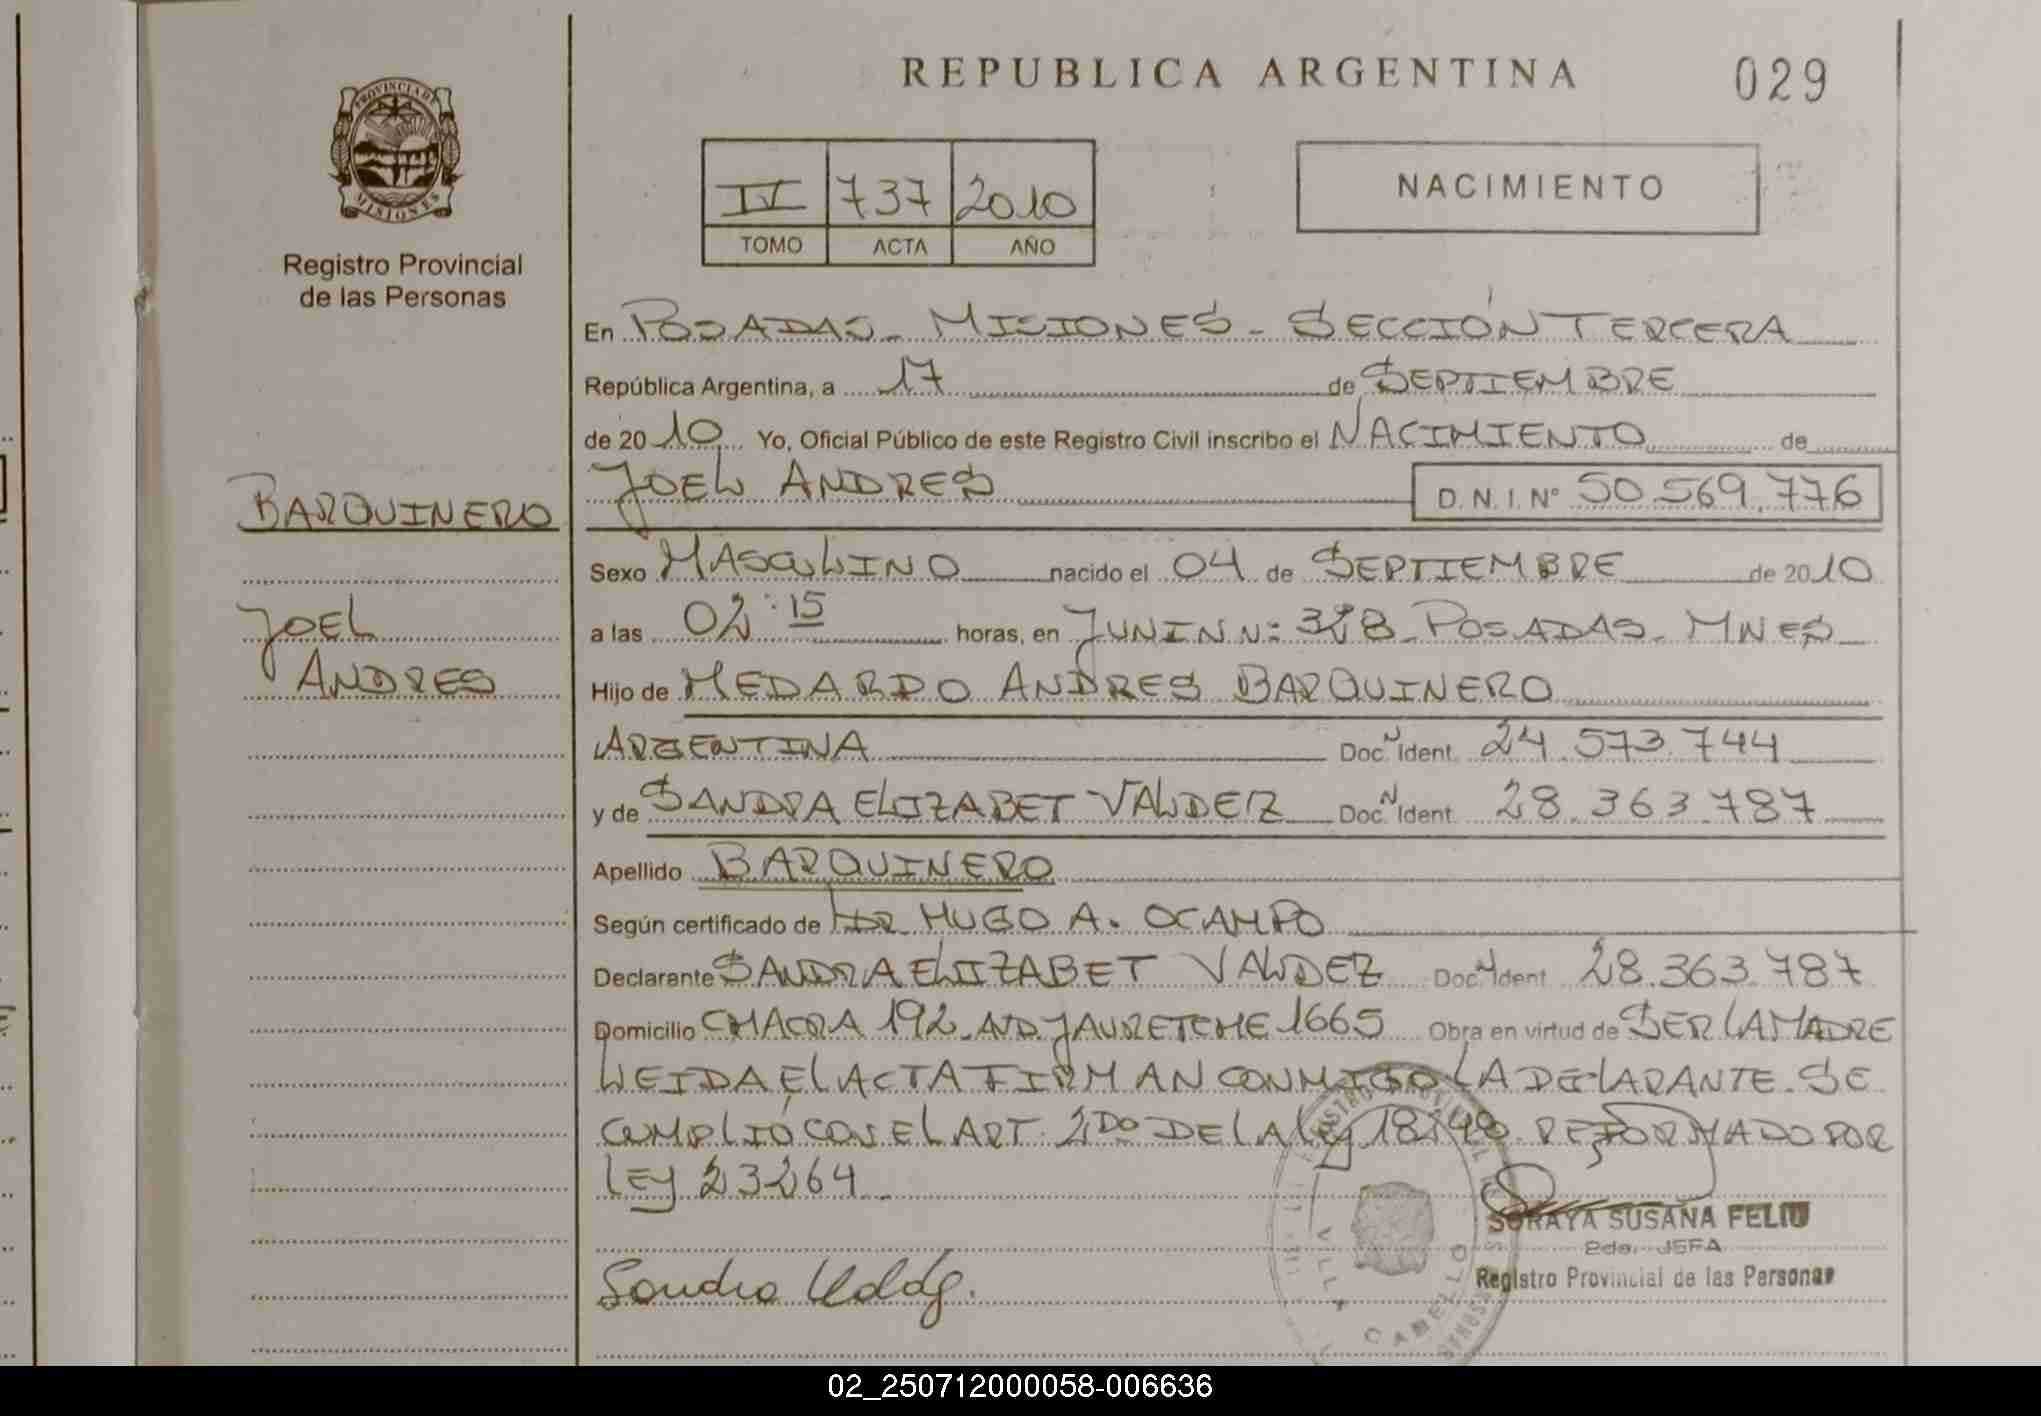 REPUBLICA ARGENTINA
029
PROVINCIA DE
MISIONES
Registro Provincial
de las Personas
IV 737 2010
TOMO ACTA AÑO
NACIMIENTO
En POSADAS - MISIONES - SECCIÓN TERCERA
República Argentina, a 17 de SEPTIEMBRE
de 2010 Yo, Oficial Público de este Registro Civil inscribo el NACIMIENTO de
JOEL ANDRES D. N. I. Nº 50.569.776
BARQUINERO
Sexo MASCULINO nacido el 04 de SEPTIEMBRE de 2010
JOEL
ANDRES
a las 02:15 horas, en JUNIN N: 328 - POSADAS - MNES
Hijo de MEDARDO ANDRES BARQUINERO
ARGENTINA Doc. N Ident. 24.573.744
y de SANDRA ELIZABET VALDEZ Doc. N Ident. 28.363.787
Apellido BARQUINERO
Según certificado de DR HUGO A. OCAMPO
Declarante SANDRA ELIZABET VALDEZ Doc. N Ident. 28.363.787
Domicilio CHACRA 192 - AVD JAURETCHE 1665 Obra en virtud de SER LA MADRE
LEIDA EL ACTA FIRMAN CONMIGO LA DECLARANTE. SE
CUMPLIÓ CON EL ART. 2DO DE LA LEY 18248 REFORMADO POR
LEY 23264
SORAYA SUSANA FELIU
2da. JEFA
Registro Provincial de las Personas
Sandra Valdez.
VILLA CABELLO
02_250712000058-006636